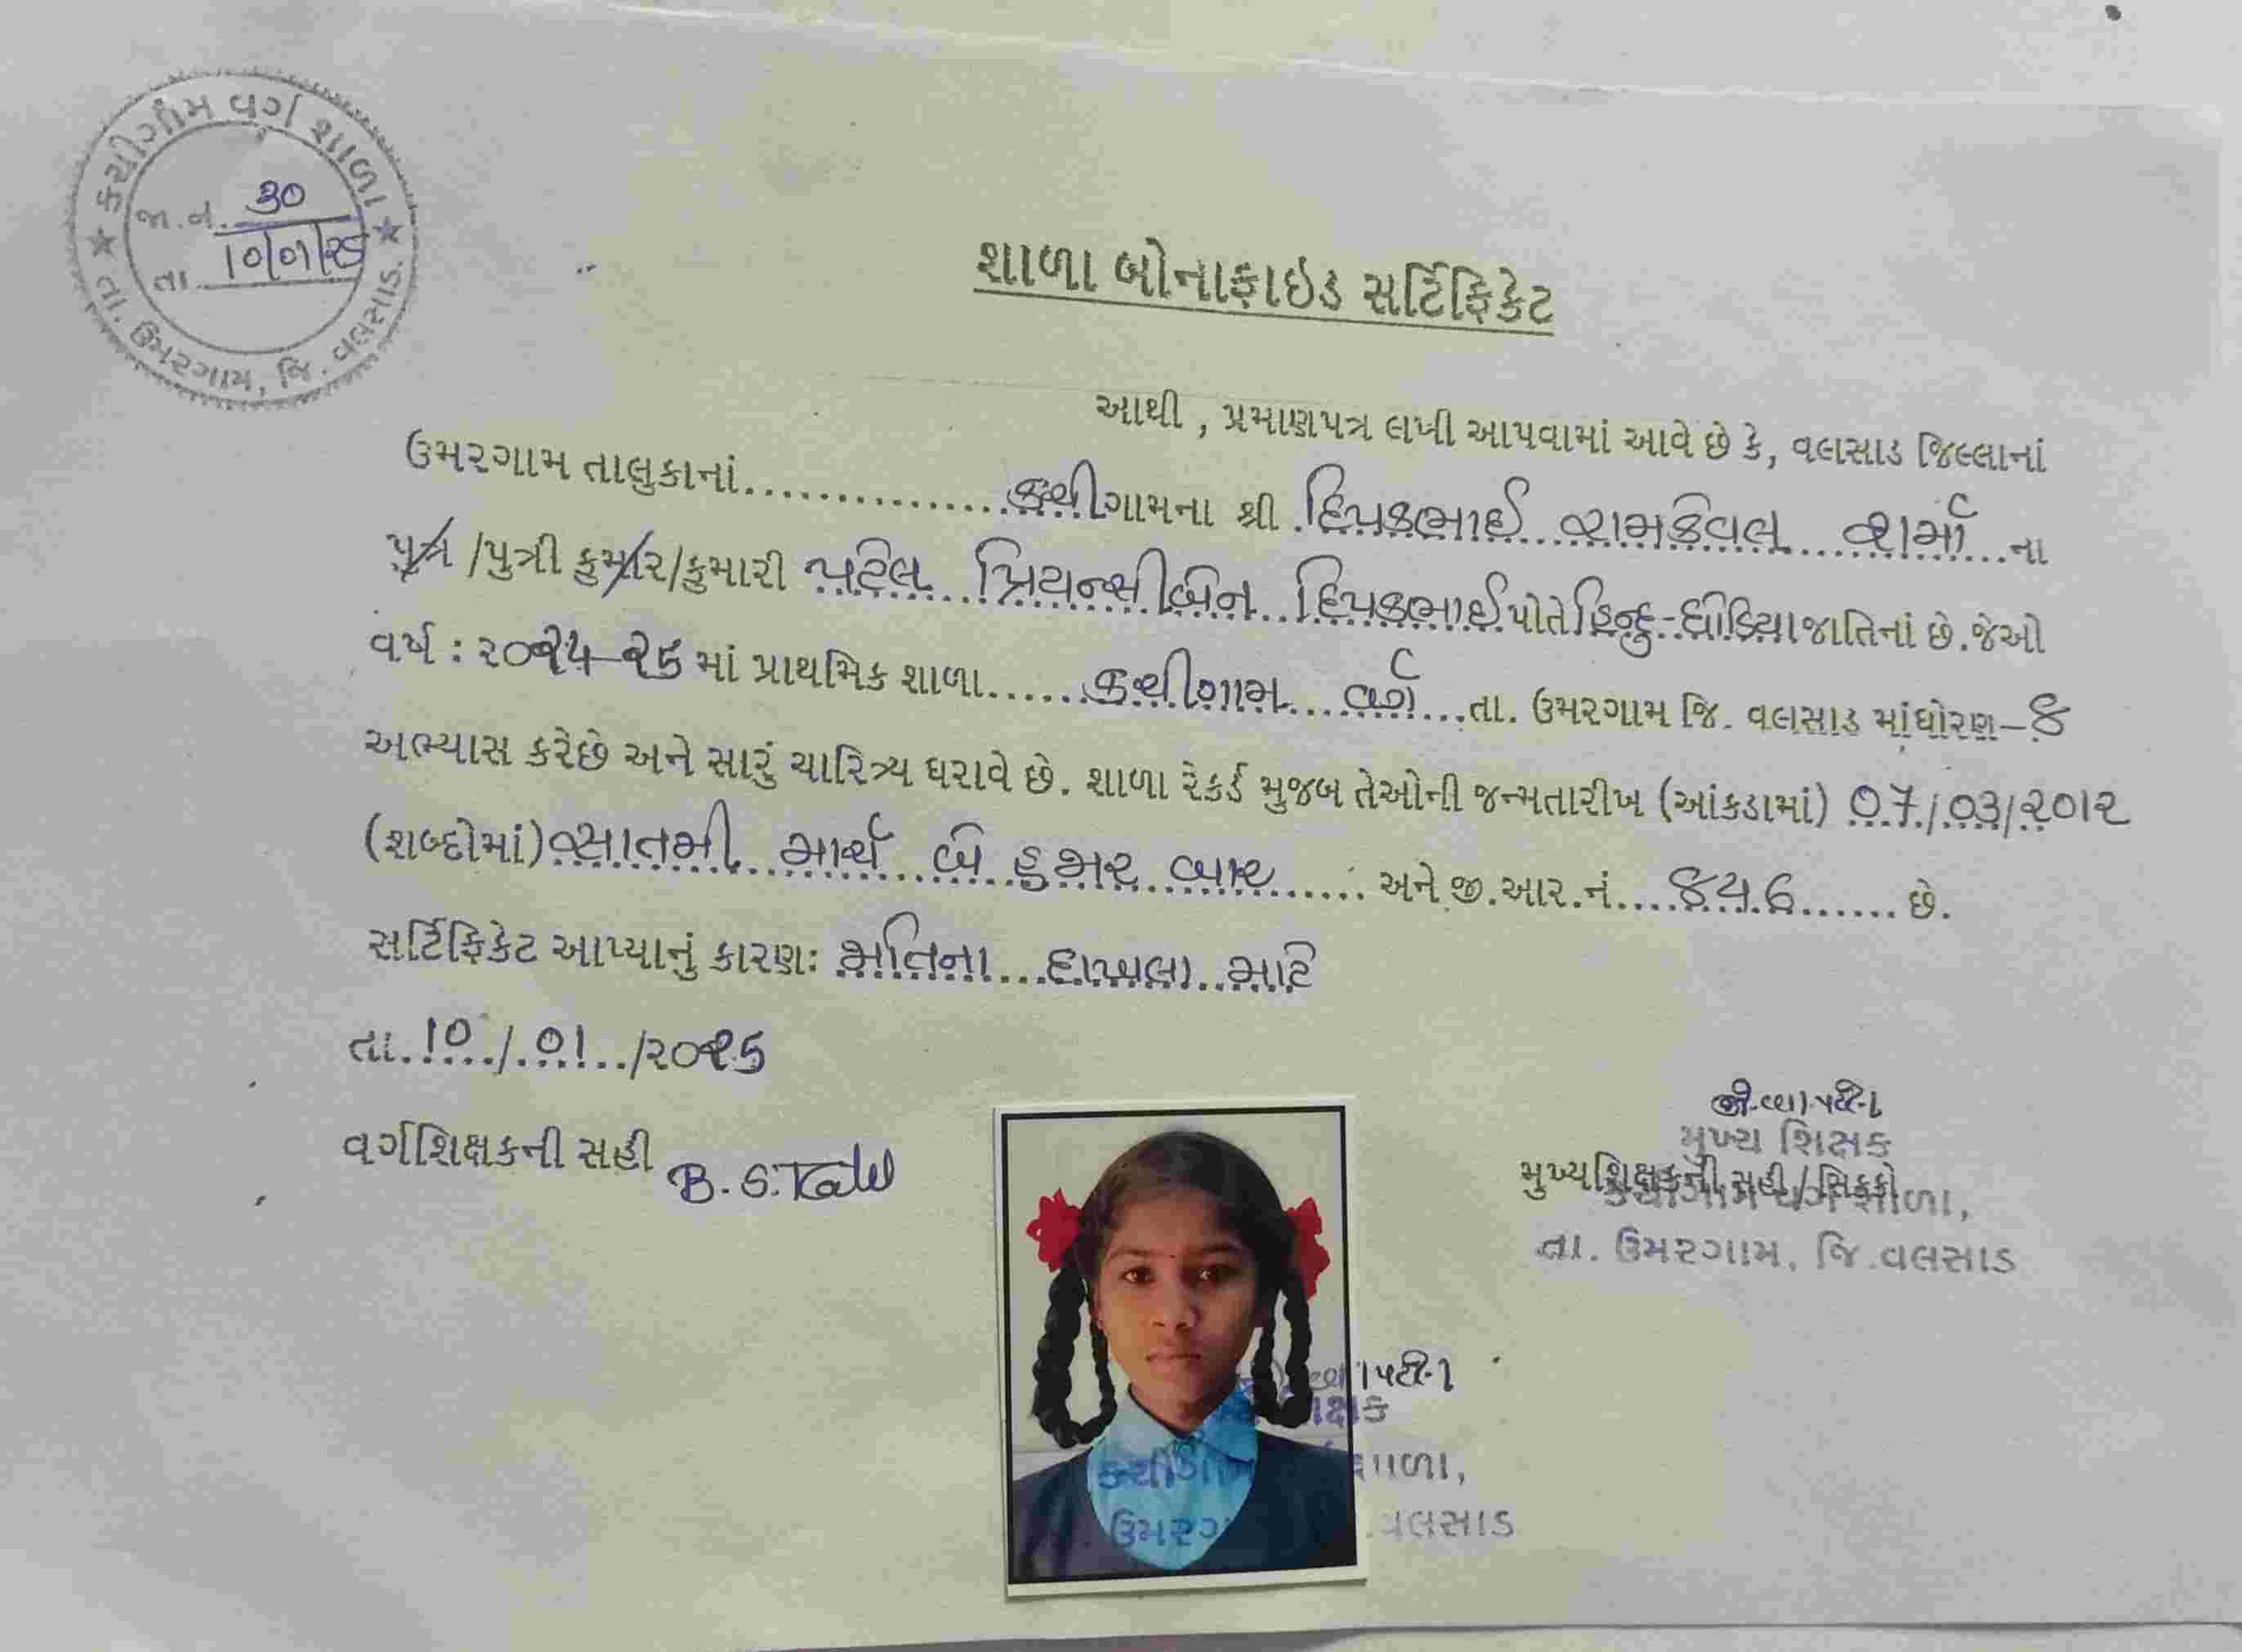 કચીગામ વર્ગ શાળા
જા.નં. 30
તા. 10/01/25
તા. ઉમરગામ, જિ. વલસાડ.
શાળા બોનાફાઇડ સર્ટિફિકેટ
આથી , પ્રમાણપત્ર લખી આપવામાં આવે છે કે, વલસાડ જિલ્લાનાં
ઉમરગામ તાલુકાનાં..............કચીગામના શ્રી .દિપકભાઈ રામકેવલ શર્મા...ના
પુત્ર /પુત્રી કુમાર/કુમારી પટેલ પ્રિયન્સીબેન દિપકભાઈ પોતે હિન્દુ-ધોડિયા જાતિનાં છે.જેઓ
વર્ષ : ૨૦૨૪-૨૫ માં પ્રાથમિક શાળા......કચીગામ વર્ગ...તા. ઉમરગામ જિ. વલસાડ માંધોરણ-૭
અભ્યાસ કરેછે અને સારું ચારિત્ર્ય ધરાવે છે. શાળા રેકર્ડ મુજબ તેઓની જન્મતારીખ (આંકડામાં) 07/03/૨૦૧૨
(શબ્દોમાં) સાતમી માર્ચ બે હજાર બાર ...... અને જી.આર.નં.... ૪૫૬ ...... છે.
સર્ટિફિકેટ આપ્યાનું કારણઃ જાતિના દાખલા માટે
તા. 10 / 01 /૨૦૨૫
વર્ગશિક્ષકની સહી
મુખ્ય શિક્ષક
મુખ્યશિક્ષકની સહી / સિક્કો
કચીગામ વર્ગ શાળા,
તા. ઉમરગામ, જિ.વલસાડ
કચીગામ શાળા,
ઉમરગ .વલસાડ